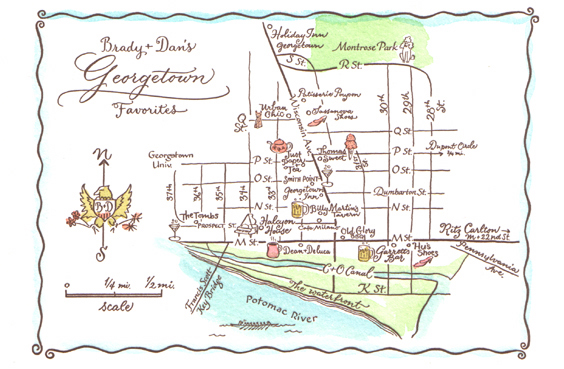 Brady + Dan's
Georgetown
Favorites
Holiday Inn
Georgetown
Montrose Park
S St.
R St.
Patisserie Poupon
Urban
Chic
Sassanova
Shoes
Wisconsin Ave.
30th
29th
28th
St.
Q
St.
Q St.
Georgetown
Univ.
P St.
Just
Paper +
Tea
Thomas
Sweet
31st St.
P St.
Dupont Circle
O St.
O St.
Smith Point
Georgetown
Inn
Dumbarton St.
37th
36th
35th
34th
33rd
N St.
N St.
Billy Martin's
Tavern
The Tombs
Prospect St.
Halcyon
House
Cafe Milano
Old Glory
BBQ
M St.
M St.
Ritz Carlton →
M + 22nd St.
Dean + Deluca
Garrett's
Bar
Hu's
Shoes
Pennsylvania
Ave.
C+O Canal
K St.
The waterfront
Francis Scott
Key Bridge
Potomac River
N
B+D
S
0
1/4 mi.
1/2 mi.
scale